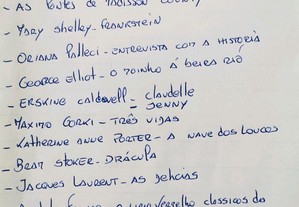 - AS PONTES DE MADISSON COUNTY
- Mary Shelley - FRANKSTEIN
- ORIANA Falleci - ENTREVISTA COM A HISTÓRIA
- GEORGE Elliot - O MOINHO Á BEIRA RIO
- ERSKINE Caldwell - Claudelle
= JENNY
- MAXIMO GORKI - TRÊS VIDAS
- Katherine ANNE PORTER - A NAVE DOS LOUCOS
- BRAM STOKER - DRÁCULA
- JACQUES LAURENT - AS
VERMELHO CLASSICOS DA